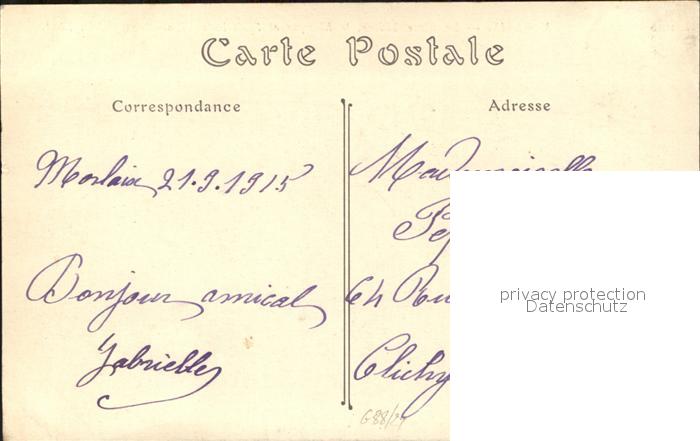 Carte Postale
Correspondance
Adresse
Morlaix 21.9.1915
Bonjour amical
Gabrielle
Mademoiselle
64 Ru
Clichy
privacy protection
Datenschutz
G88/24